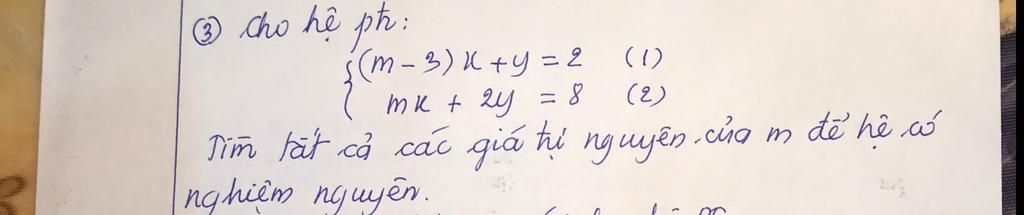 ③ Cho hệ pt:
(m - 3)x + y = 2 (1)
mx + 2y = 8 (2)
Tìm tất cả các giá trị nguyên của m để hệ có
nghiệm nguyên.